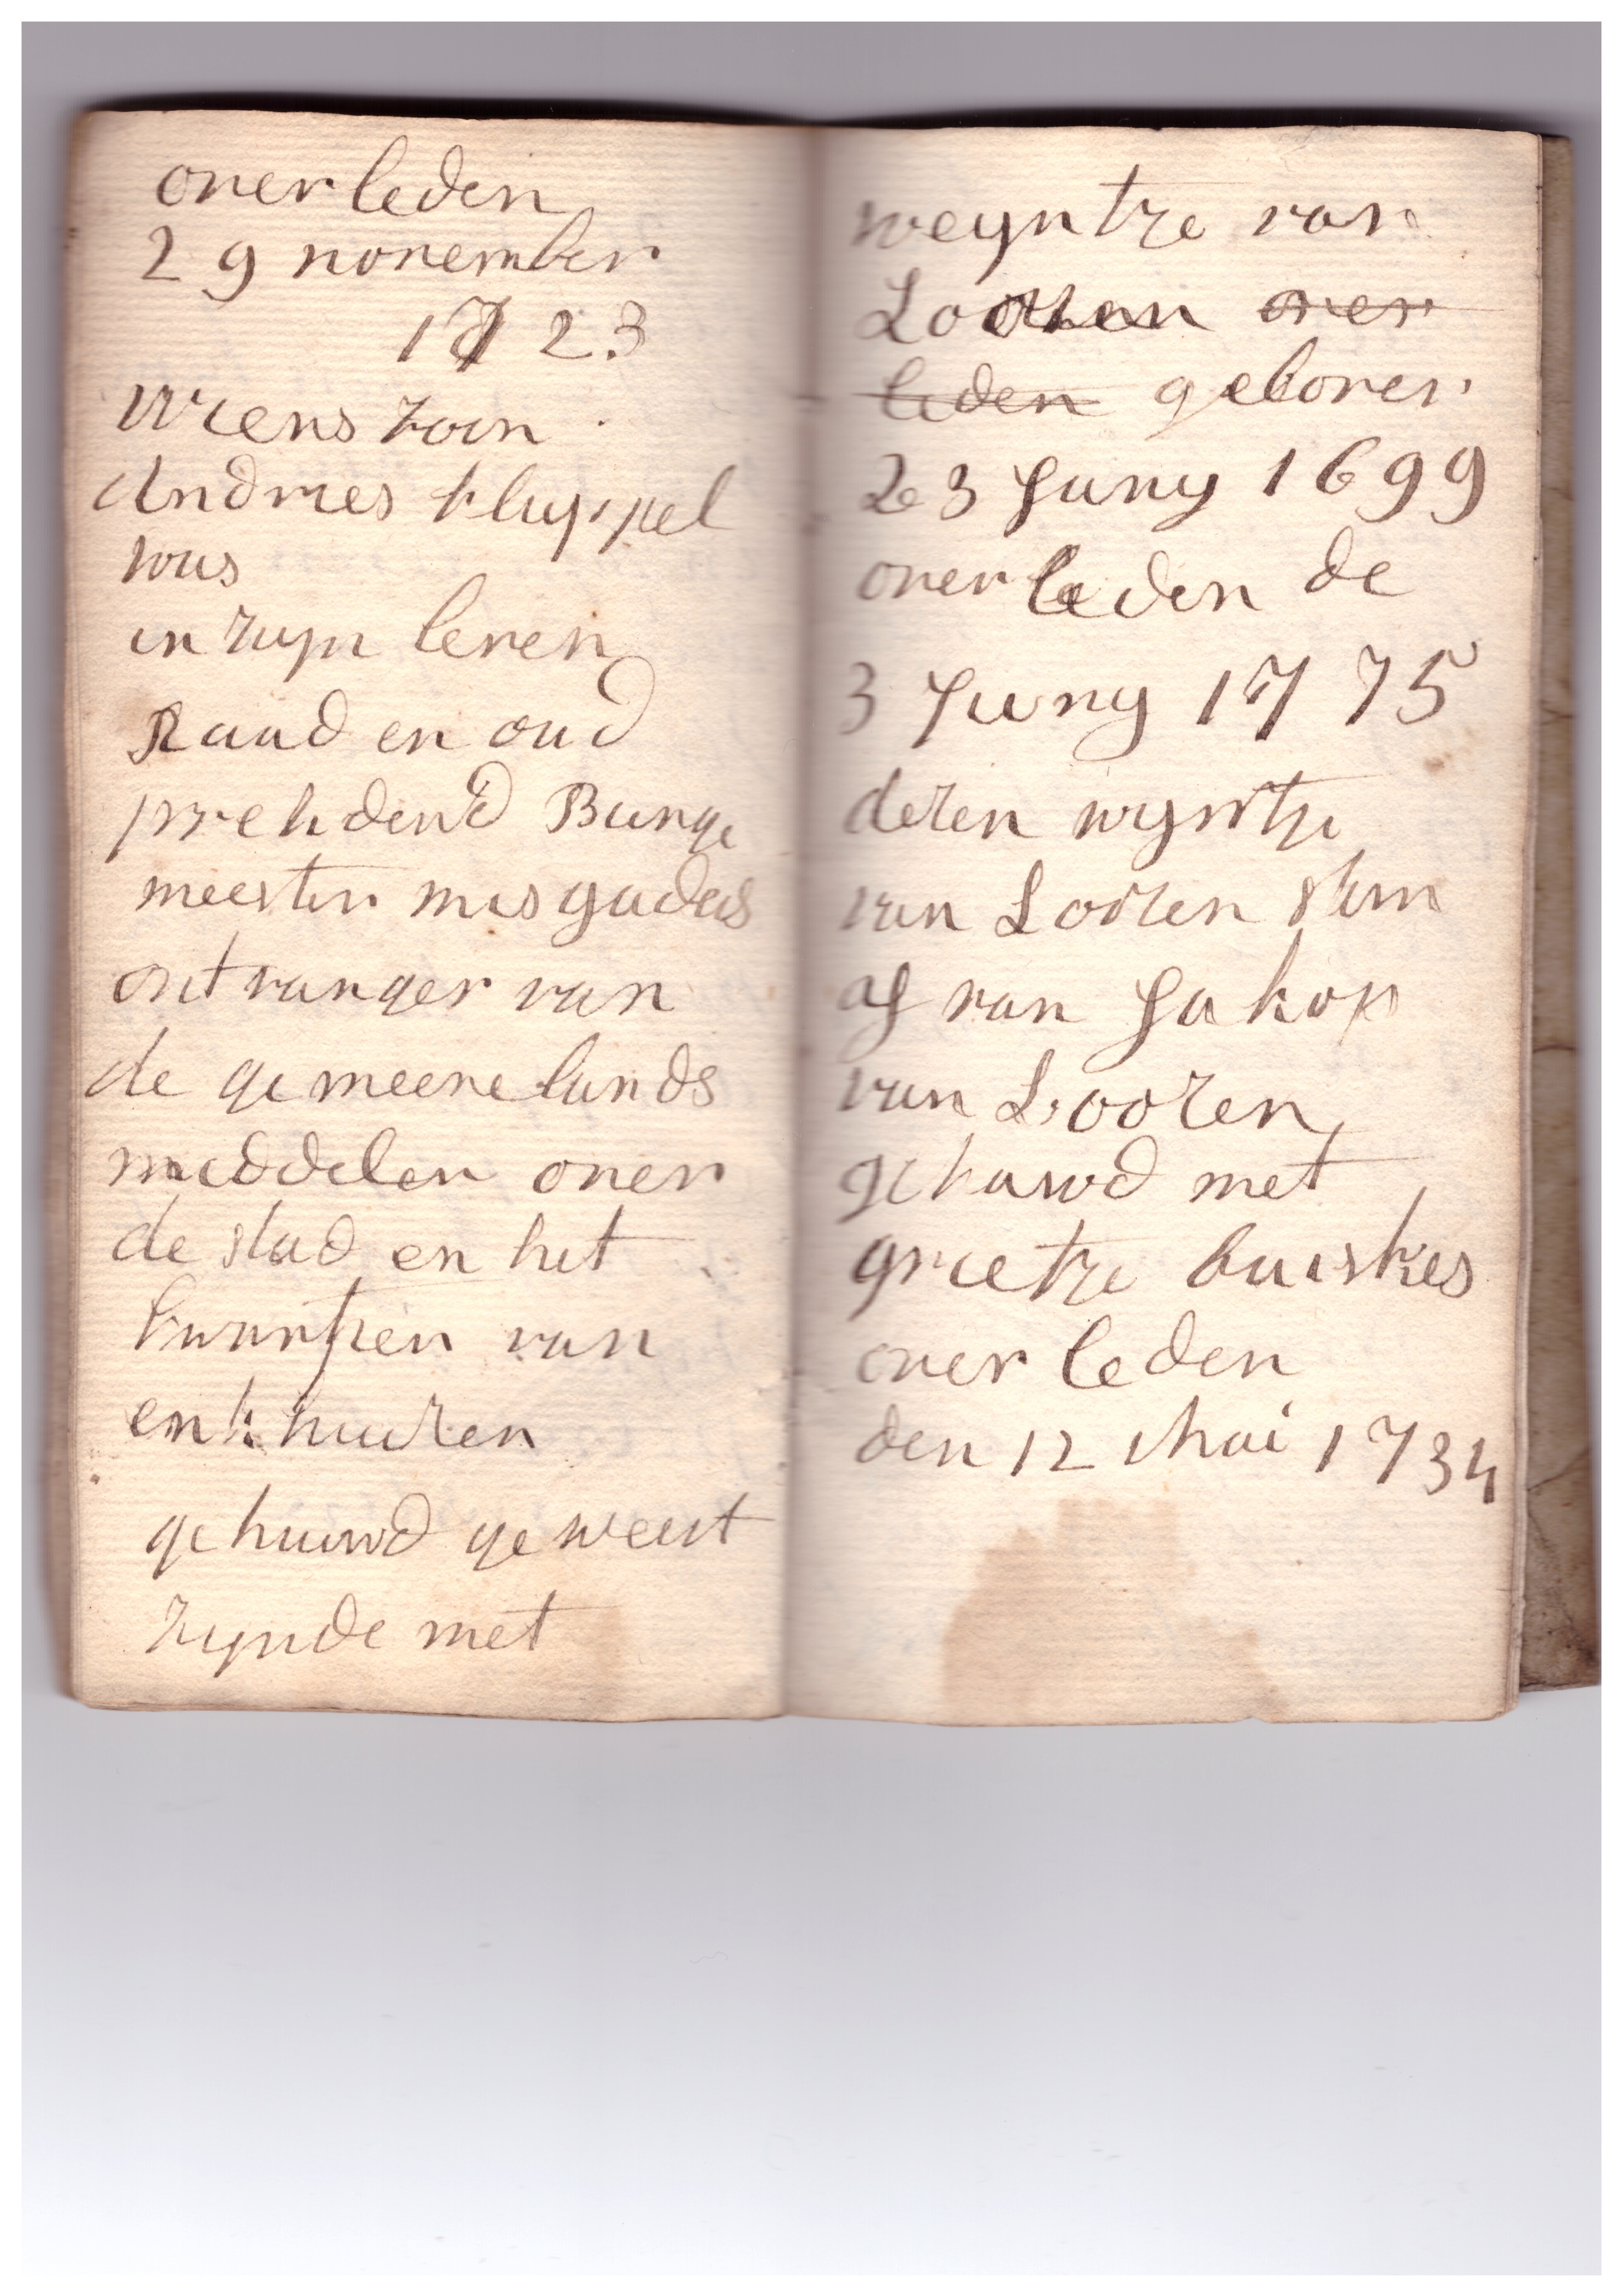 overleden
29 november
1723
wiens zoon
Andries kluppel
was
in zijn leven
Raad en oud
presidend Burge
meester misgaders
ontvanger van
de gemeenelands
middelen over
de stad en het
kwartier van
enkhuizen
gehuwd geweest
zynde met
weyntze van
Loozen over
leden geboren
23 Juny 1699
overleden de
3 Juny 1775
dezen wijntze
van Loozen stam
af van Jakop
van Loozen
gehuwd met
grietze buiskes
over leden
den 12 Mai 1734